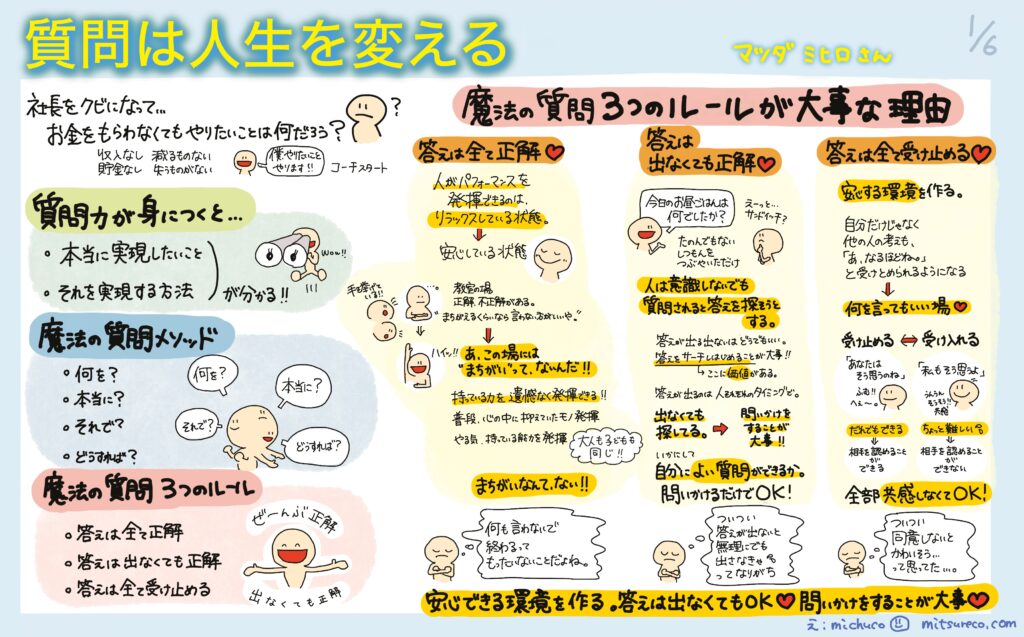 質問は人生を変える
マツダミヒロさん
1/6
社長をクビになって…
お金をもらわなくてもやりたいことは何だろう?
?
収入なし 減るものない
貯金なし 失うものがない
僕やりたいこと
やります!!
コーチスタート
質問力が身につくと…
・本当に実現したいこと
・それを実現する方法
が分かる!!
wow!!
魔法の質問メソッド
・何を?
・本当に?
・それで?
・どうすれば?
何を?
本当に?
それで?
どうすれば?
魔法の質問 3つのルール
・答えは全て正解
・答えは出なくても正解
・答えは全て受け止める
ぜーんぶ正解
出なくても正解
魔法の質問3つのルールが大事な理由
答えは全て正解♥
人がパフォーマンスを
発揮できるのは、
リラックスしている状態。
安心している状態
手も挙げて
いる!!
教室の場
正解 不正解がある。
"まちがえるくらいなら言わない方がいいや。"
ハイッ!!
あ、この場には
"まちがい"って、ないんだ!!
持っている力を遺憾なく発揮できる!!
普段、心の中に抑えていたモノ発揮
やる気、持っている能力を発揮
大人も子どもも
同じ!!
まちがいなんて、ない!!
何も言わないで
終わるって
もったいないことだよね。
答えは
出なくても正解♥
今日のお昼ごはんは
何でしたか?
えーっと…
サンドイッチ?
たのんでもない
しつもんを
つぶやいただけ
人は意識しないでも
質問されると答えを探そうと
する。
答えが出る出ないはどうでもいい。
答えをサーチしはじめることが大事!!
ここに価値がある。
答えが出るのは人それぞれのタイミングで。
出なくても
探してる。
問いかけを
することが
大事!!
いかにして
自分によい質問ができるか。
問いかけるだけでOK!
ついつい
答えが出ないと
無理にでも
出さなきゃ
ってなりがち
答えは全て受け止める♥
安心する環境を作る。
自分だけじゃなく
他の人の考えも、
「あ、なるほどね。」
と受けとめられるようになる
何を言ってもいい場♥
受け止める ⇔ 受け入れる
「あなたは
そう思うのね」
「私もそう思うよ」
ふむ!!
へぇ〜。
うんうん
そうそう!!
共感
だれでもできる
相手を認めること
が
できる
ちょっと難しい
相手を認めること
が
できない
全部共感しなくてOK!
ついつい
同意しないと
かわいそう…
って思ってた…。
安心できる環境を作る。答えは出なくてもOK♥問いかけをすることが大事♥
え:michuco mitsureco.com